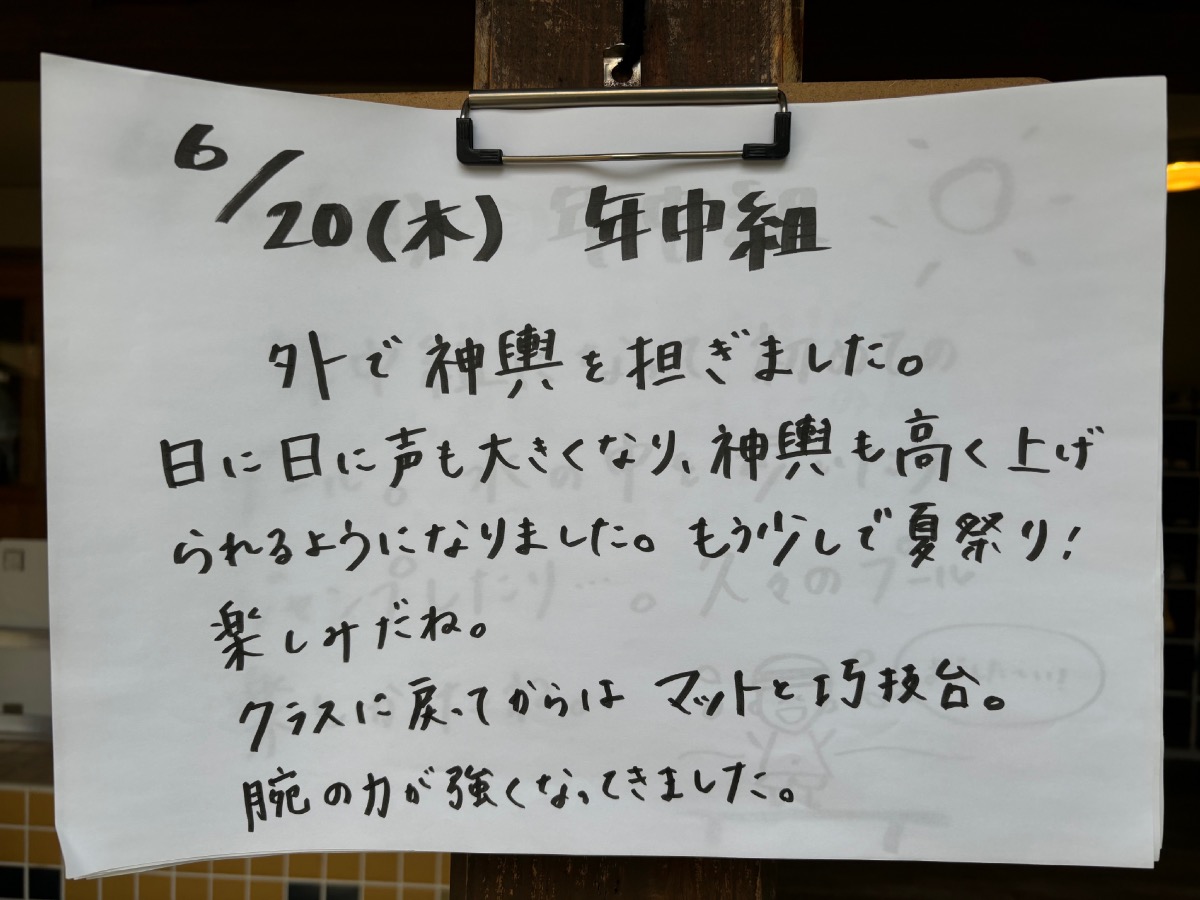 6/20(木) 年中組
外で神輿を担ぎました。
日に日に声も大きくなり、神輿も高く上げ
られるようになりました。もう少しで夏祭り!
楽しみだね。
クラスに戻ってからは マットと巧技台。
腕の力が強くなってきました。